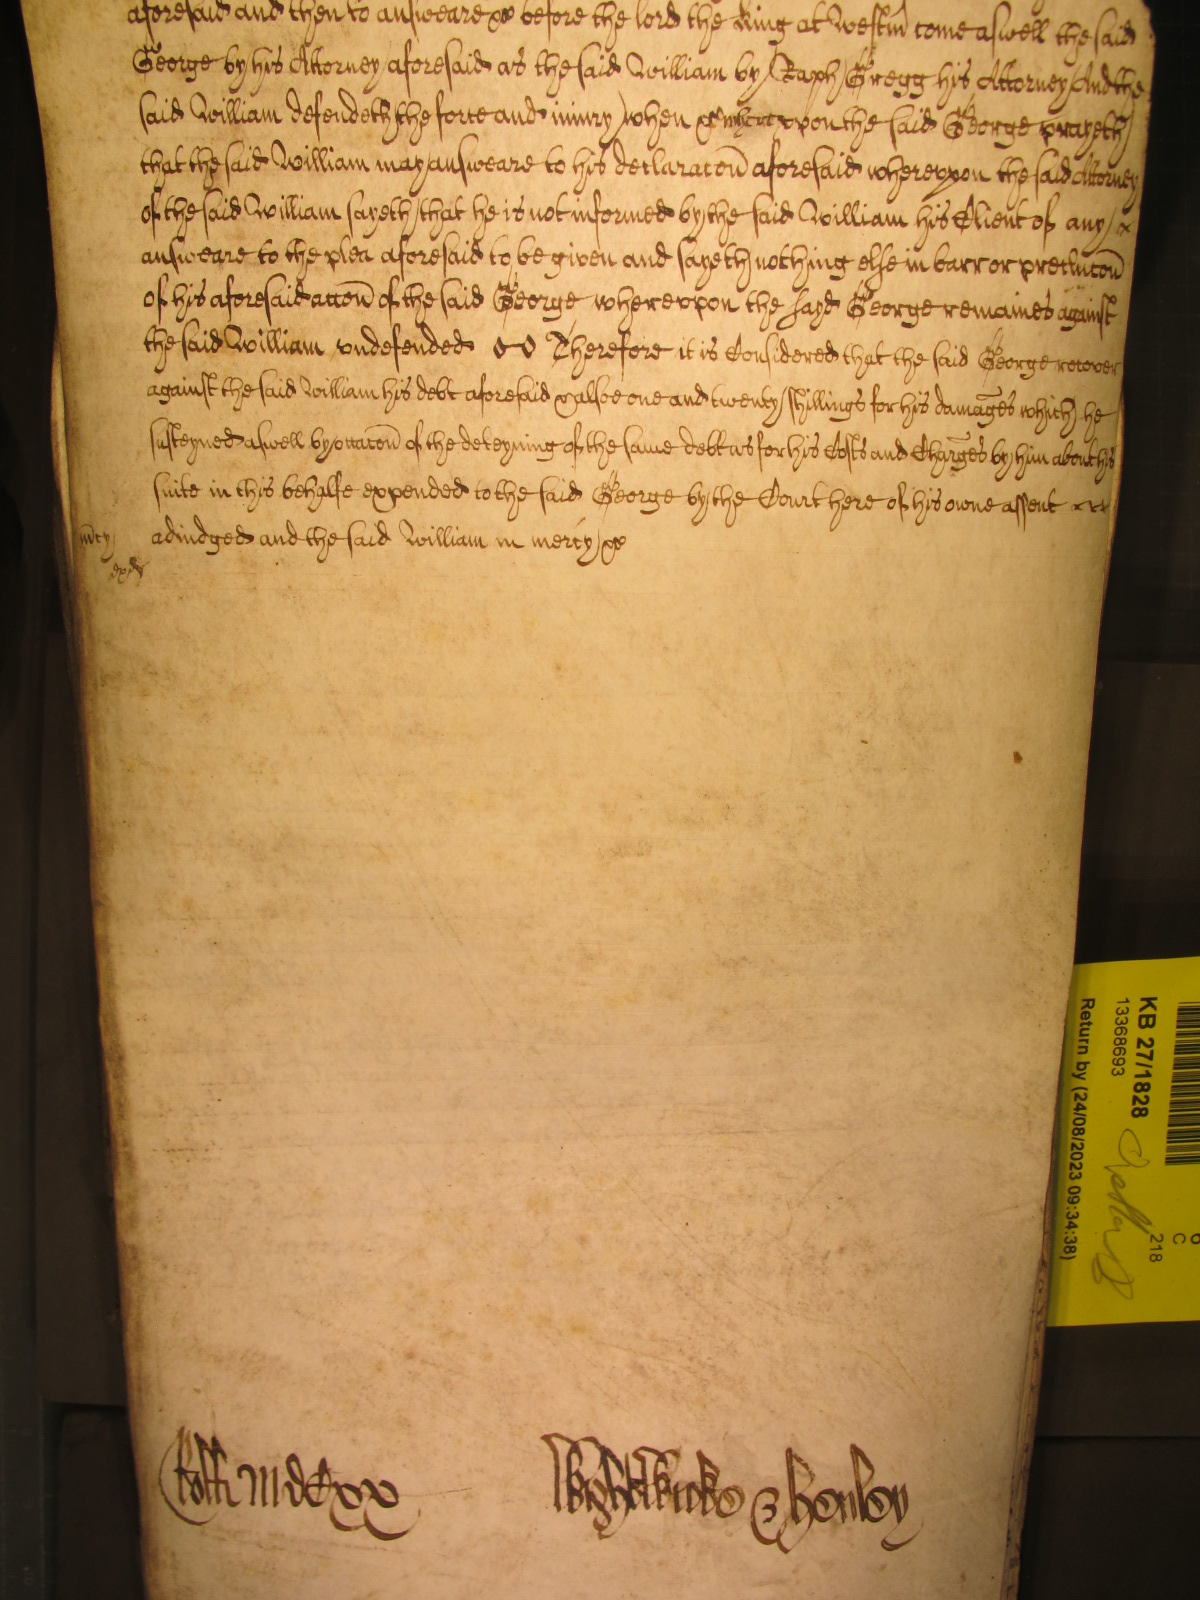 aforesaid and then to answeare &c before the lord the King at Westm come aswell the said
George by his Attorney aforesaid as the said William by Raph Gregg his Attorney And the
said William defendeth the force and iniury when &c whereupon the said George prayeth
that the said William may answeare to his declaracon aforesaid whereupon the said Attorney
of the said William sayeth that he is not informed by the said William his Client of any
answeare to the plea aforesaid to be given and sayeth nothing else in barr or preclucon
of his aforesaid accon of the said George whereupon the sayd George remaines against
the said William undefended Therefore it is Considered that the said George recover
against the said William his debt aforesaid & alsoe one and twenty shillings for his damages which he
susteyned aswell by occacon of the deteyning of the same debt as for his Costs and Charges by him about his
suite in this behalfe expended to the said George by the Court here of his owne assent
adiudged and the said William in mercy &c
mcy
KB 27/1828
13368693
Return by (24/08/2023 09:34:38)
218
C
6
Rolls MdCxx
& Henley